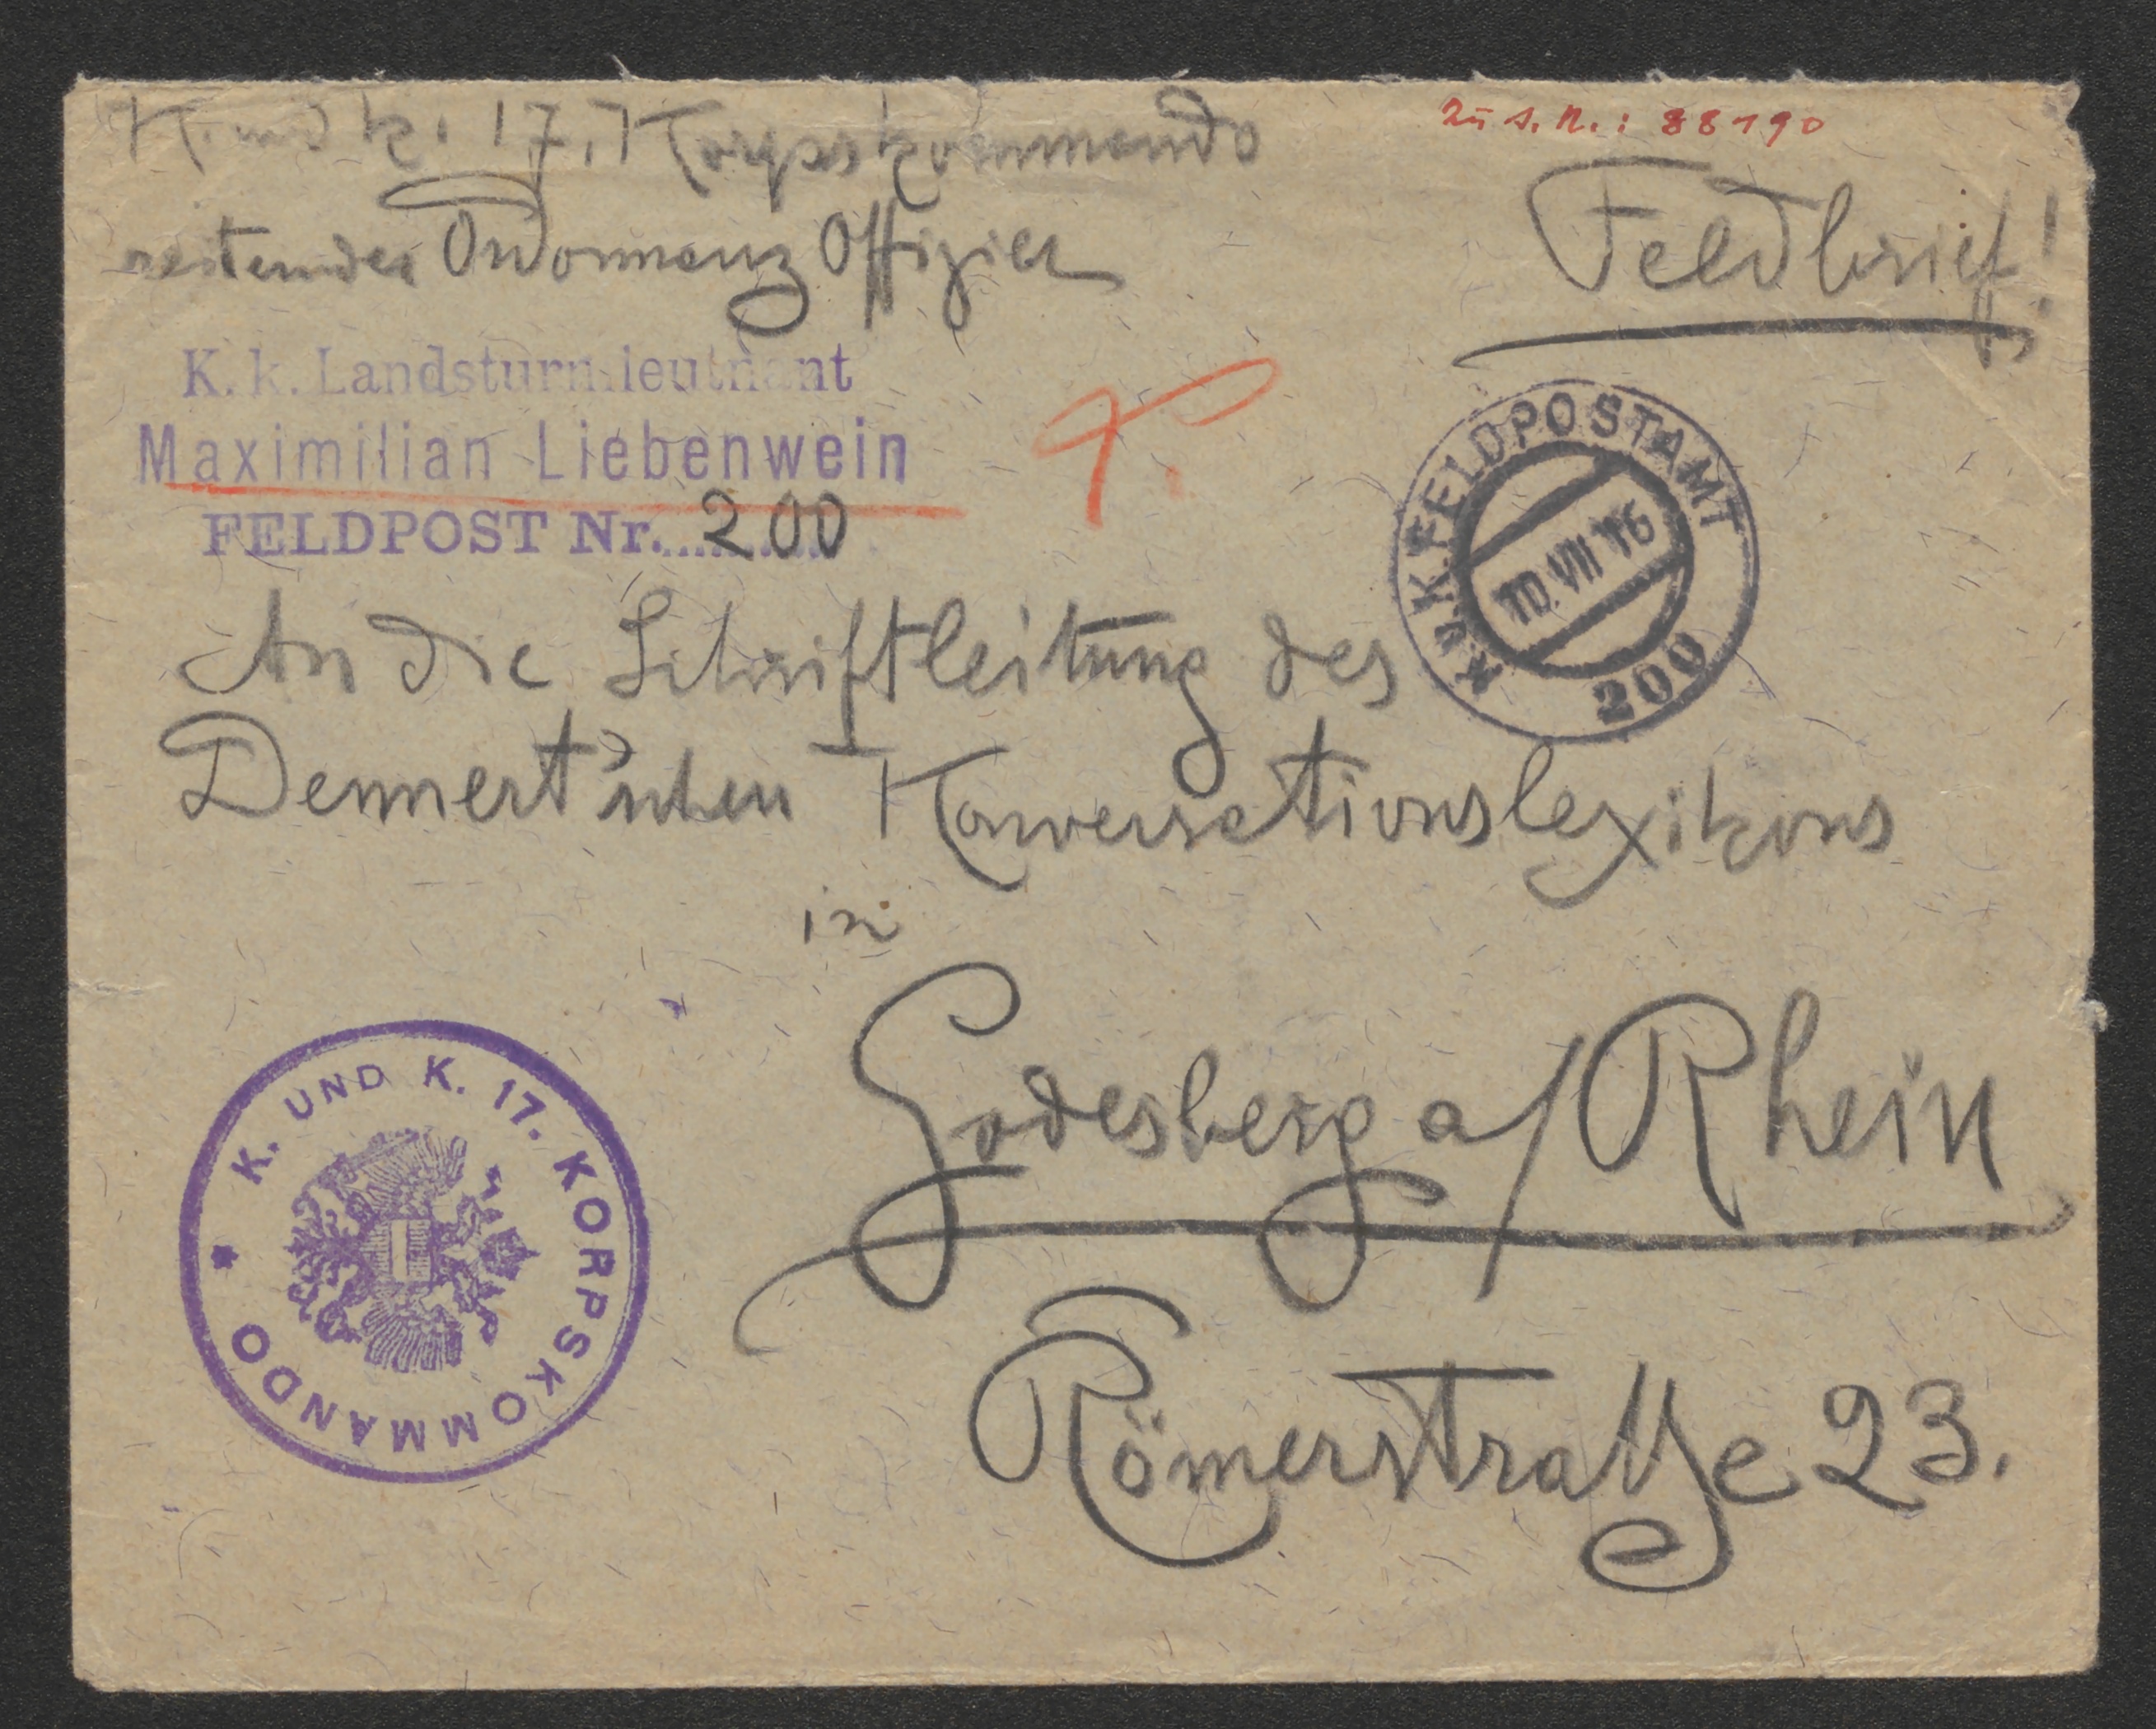 K. und k. 17. Korpskommando
zu s. N.: 88190
reitender Ordonnanz Offizier
Feldbrief!
K. k. Landsturmleutnant
Maximilian Liebenwein
FELDPOST Nr. 200
K.u.K. FELDPOSTAMT
10. VII 16
200
An die Schriftleitung des
Dennert'schen Konversationslexikons
in
Godesberg a/Rhein
Römerstraße 23.
K. UND K. 17. KORPSKOMMANDO *